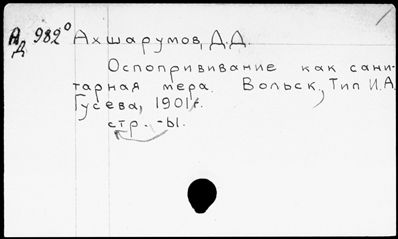 АД 982° Ахшарумов, Д.Д.
Оспопрививание как сани-
тарная мера. Вольск, Тип И.А.
Гусева, 1901 г.
стр. -ы.